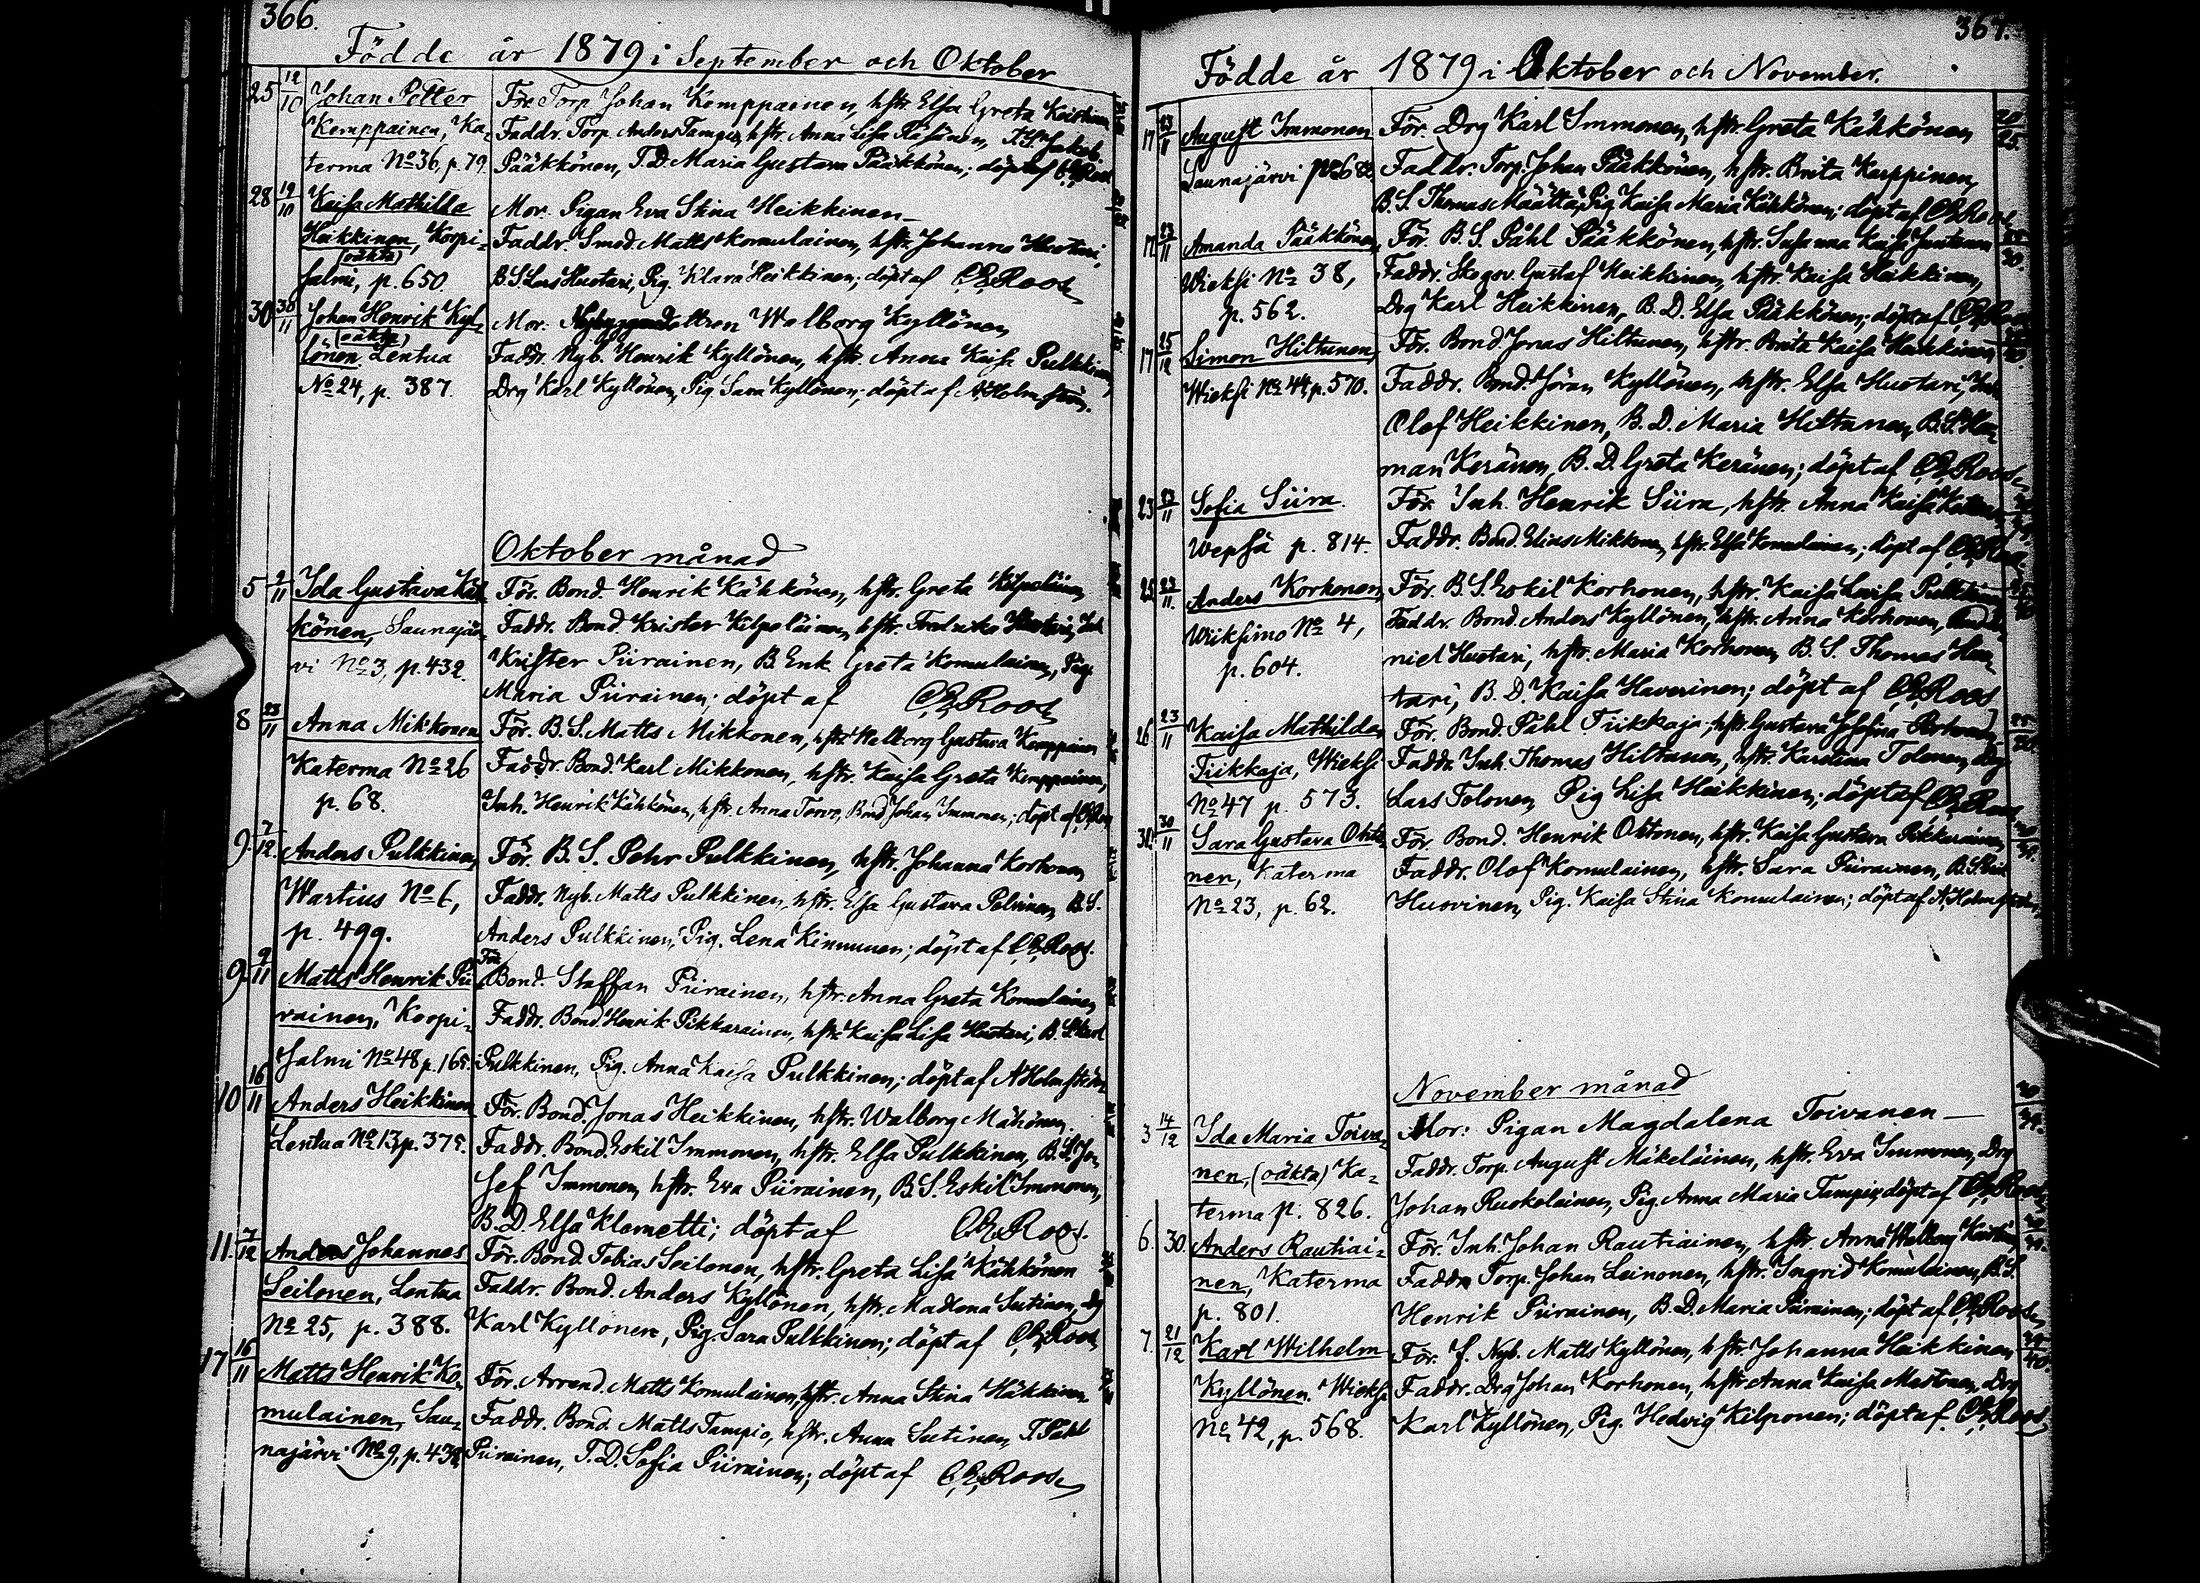 366.
Födde år 1879 i September och Oktober
25 12/10 Johan Petter Far Torp Johan Kemppainen, hstr. Elsa Greta
Kemppainen, Ka- Faddr. Torp. Anders Tampio, hstr. Anna Lisa Räsänen, T.S. Jakob
terma No 36, p. 79. Pääkkönen, T.D. Maria Gustava Pääkkönen; döpt af C.E. Roos
28 19/10 Kaisa Mathilda Mor. Pigan Eva Stina Heikkinen—
Heikkinen, Korpi- Faddr. Smed. Matts Komulainen, hstr. Johanna Huotari,
(oäkta)
salmi, p. 650. B.S. Lars Huotari, Pig. Klara Heikkinen; döpt af C.E. Roos
30 30/11 Johan Henrik Kyl- Mor. Walborg Kyllönen
(oäkta)
lönen. Lentua Faddr. Nyb. Henrik Kyllönen, hstr. Anna Kaisa Pulkkinen,
No 24, p. 387. Drg Karl Kyllönen, Pig. Sara Kyllönen; döpt af A. Holmström.
Oktober månad
5 2/11 Ida Gustava Käh Far. Bond. Henrik Kähkönen, hstr. Greta Kilpeläinen
könen, Saunajär- Faddr. Bond. Krister Kilpeläinen, hstr. Fredrika Huotari, Inh.
vi No 3, p. 432. Krister Piirainen, B. Enk. Greta Komulainen, Pig.
Maria Piirainen; döpt af C.E. Roos
8 23/11 Anna Mikkonen Far. B.S. Matts Mikkonen, hstr. Walborg Gustava Kemppainen
Katerma No 26 Faddr. Bond. Karl Mikkonen, hstr. Kaisa Greta Kemppainen,
p. 68. Inh. Henrik Kähkönen, hstr. Anna Torvo, Bond Johan Immonen; döpt af C.E. Roos
9 7/12 Anders Pulkkinen Far. B.S. Pehr Pulkkinen, hstr. Johanna Korhonen
Wartius No 6, Faddr. Nyb. Matts Pulkkinen, hstr. Elsa Gustava Polvinen, B.S.
p. 499. Anders Pulkkinen, Pig. Lena Kinnunen; döpt af C.E. Roos.
9 9/11 Matts Henrik Pii Far Bond. Staffan Piirainen, hstr. Anna Greta Komulainen
rainen, Korpi- Faddr. Bond. Henrik Pikkarainen, hstr. Kaisa Lisa Huotari, B.S. Karl
salmi No 48 p. 165. Pulkkinen, Pig. Anna Kaisa Pulkkinen; döpt af A Holmström
10 16/11 Anders Heikkinen Far. Bond. Jonas Heikkinen, hstr. Walborg Mähönen.
Lentua No 13, p. 375. Faddr. Bond. Eskil Immonen, hstr. Elsa Pulkkinen, B.S. Jo-
sef Immonen, hstr. Eva Piirainen, B.S. Eskil Immonen,
B.D. Elsa Klemetti; döpt af C.E. Roos.
11. 7/12 Anders Johannes Far. Bond. Tobias Seilonen, hstr. Greta Lisa Kähkönen
Seilonen, Lentua Faddr. Bond. Anders Kyllönen, hstr. Madlena Sutinen, Dg
No 25, p. 388. Karl Kyllönen, Pig. Sara Pulkkinen; döpt af C.E. Roos
17 16/11 Matts Henrik Ko- Far. Arrend. Matts Komulainen, hstr. Anna Stina Häkkinen
mulainen, Sau- Faddr. Bond. Matts Tampio, hstr. Anna Sutinen, T. Påhl
najärvi No 9, p. 438. Piirainen, T.D. Sofia Piirainen; döpt af C.E. Roos
367.
Födde år 1879 i Oktober och November.
17 23/11 August Immonen Far. Drg Karl Immonen, hstr. Greta Kähkönen
Saunajärvi p. 682 Faddr. Torp. Johan Pääkkönen, hstr. Brita Karppinen,
B.S. Thomas Määttä, Pig Kaisa Maria Kähkönen; döpt af C.E. Roos
17 23/11 Amanda Pääkkönen, Far. B.S. Påhl Pääkkönen, hstr. Susanna Kaisa Juntunen
Wieksi No 38, Faddr. Skogsv. Gustaf Heikkinen, hstr. Kaisa Heikkinen,
p. 562. Drg Karl Heikkinen, B.D. Elsa Pääkkönen; döpt af C.E. Roos
17 25/12 Simon Hiltunen, Far. Bond Jonas Hiltunen, hstr. Brita Kaisa Heikkinen
Wieksi No 44, p. 570. Faddr. Bond. Jöran Kyllönen, hstr. Elsa Huotari, Inh.
Olof Heikkinen, B.D. Maria Hiltunen, B.S. Her-
man Keränen, B.D. Greta Keränen; döpt af C.E. Roos
23 23/11 Sofia Siira. Far. Inh. Henrik Siira, hstr. Anna Kaisa
Wepsä p. 814. Faddr. Bond. Elias Mikkonen, hstr. Elsa Komulainen; döpt af C.E. Roos
25 23/11 Anders Korhonen, Far. B.S. Eskil Korhonen, hstr. Kaisa Lovisa Pulkkinen
Wiiksimo No 4, Faddr. Bond. Anders Kyllönen, hstr. Anna Korhonen,
p. 604. niel Huotari, hstr. Maria Korhonen, B.S. Thomas Huo-
tari, B.D. Kaisa Haverinen; döpt af C.E. Roos
26 23/11 Kaisa Mathilda Far. Bond. Påhl Tiikkaja, hstr. Gustava Josefina
Tiikkaja, Wieksi Faddr. Inh. Thomas Hiltunen, hstr. Karolina Tolonen, Drg
No 47 p. 573. Lars Tolonen, Pig Lisa Heikkinen; döpt af C.E. Roos
30/11 Sara Gustava Okko- Far. Bond. Henrik Okkonen, hstr. Kaisa Gustava Pikkarainen,
nen, Katerma Faddr. Olof Komulainen, hstr. Sara Piirainen, B.S.
No 23, p. 62. Huovinen, Pig. Kaisa Stina Komulainen; döpt af A. Holmström
November månad
3 14/12 Ida Maria Toiva- Mor: Pigan Magdalena Toivanen—
nen, (oäkta) Ka- Faddr. Torp. August Mäkeläinen, hstr. Eva Immonen, Drg
terma p. 826. Johan Ruokolainen, Pig. Anna Maria Tampio; döpt af C.E. Roos
6. 30. Anders Rautiai- Far. Inh. Johan Rautiainen, hstr. Anna Walborg
nen, Katerma Faddr. Torp. Johan Leinonen, hstr. Ingrid Komulainen, B.S.
p. 801. Henrik Piirainen, B.D. Maria Piirainen; döpt af C.E. Roos
7. 21/12 Karl Wilhelm Far. f. Nyb. Matts Kyllönen, hstr. Johanna Heikkinen
Kyllönen. Wieksi Faddr. Drg Johan Korhonen, hstr. Anna Kaisa Mustonen, Drg
No 42, p. 568. Karl Kyllönen, Pig. Hedvig Kilponen; döpt af. C.E. Roos